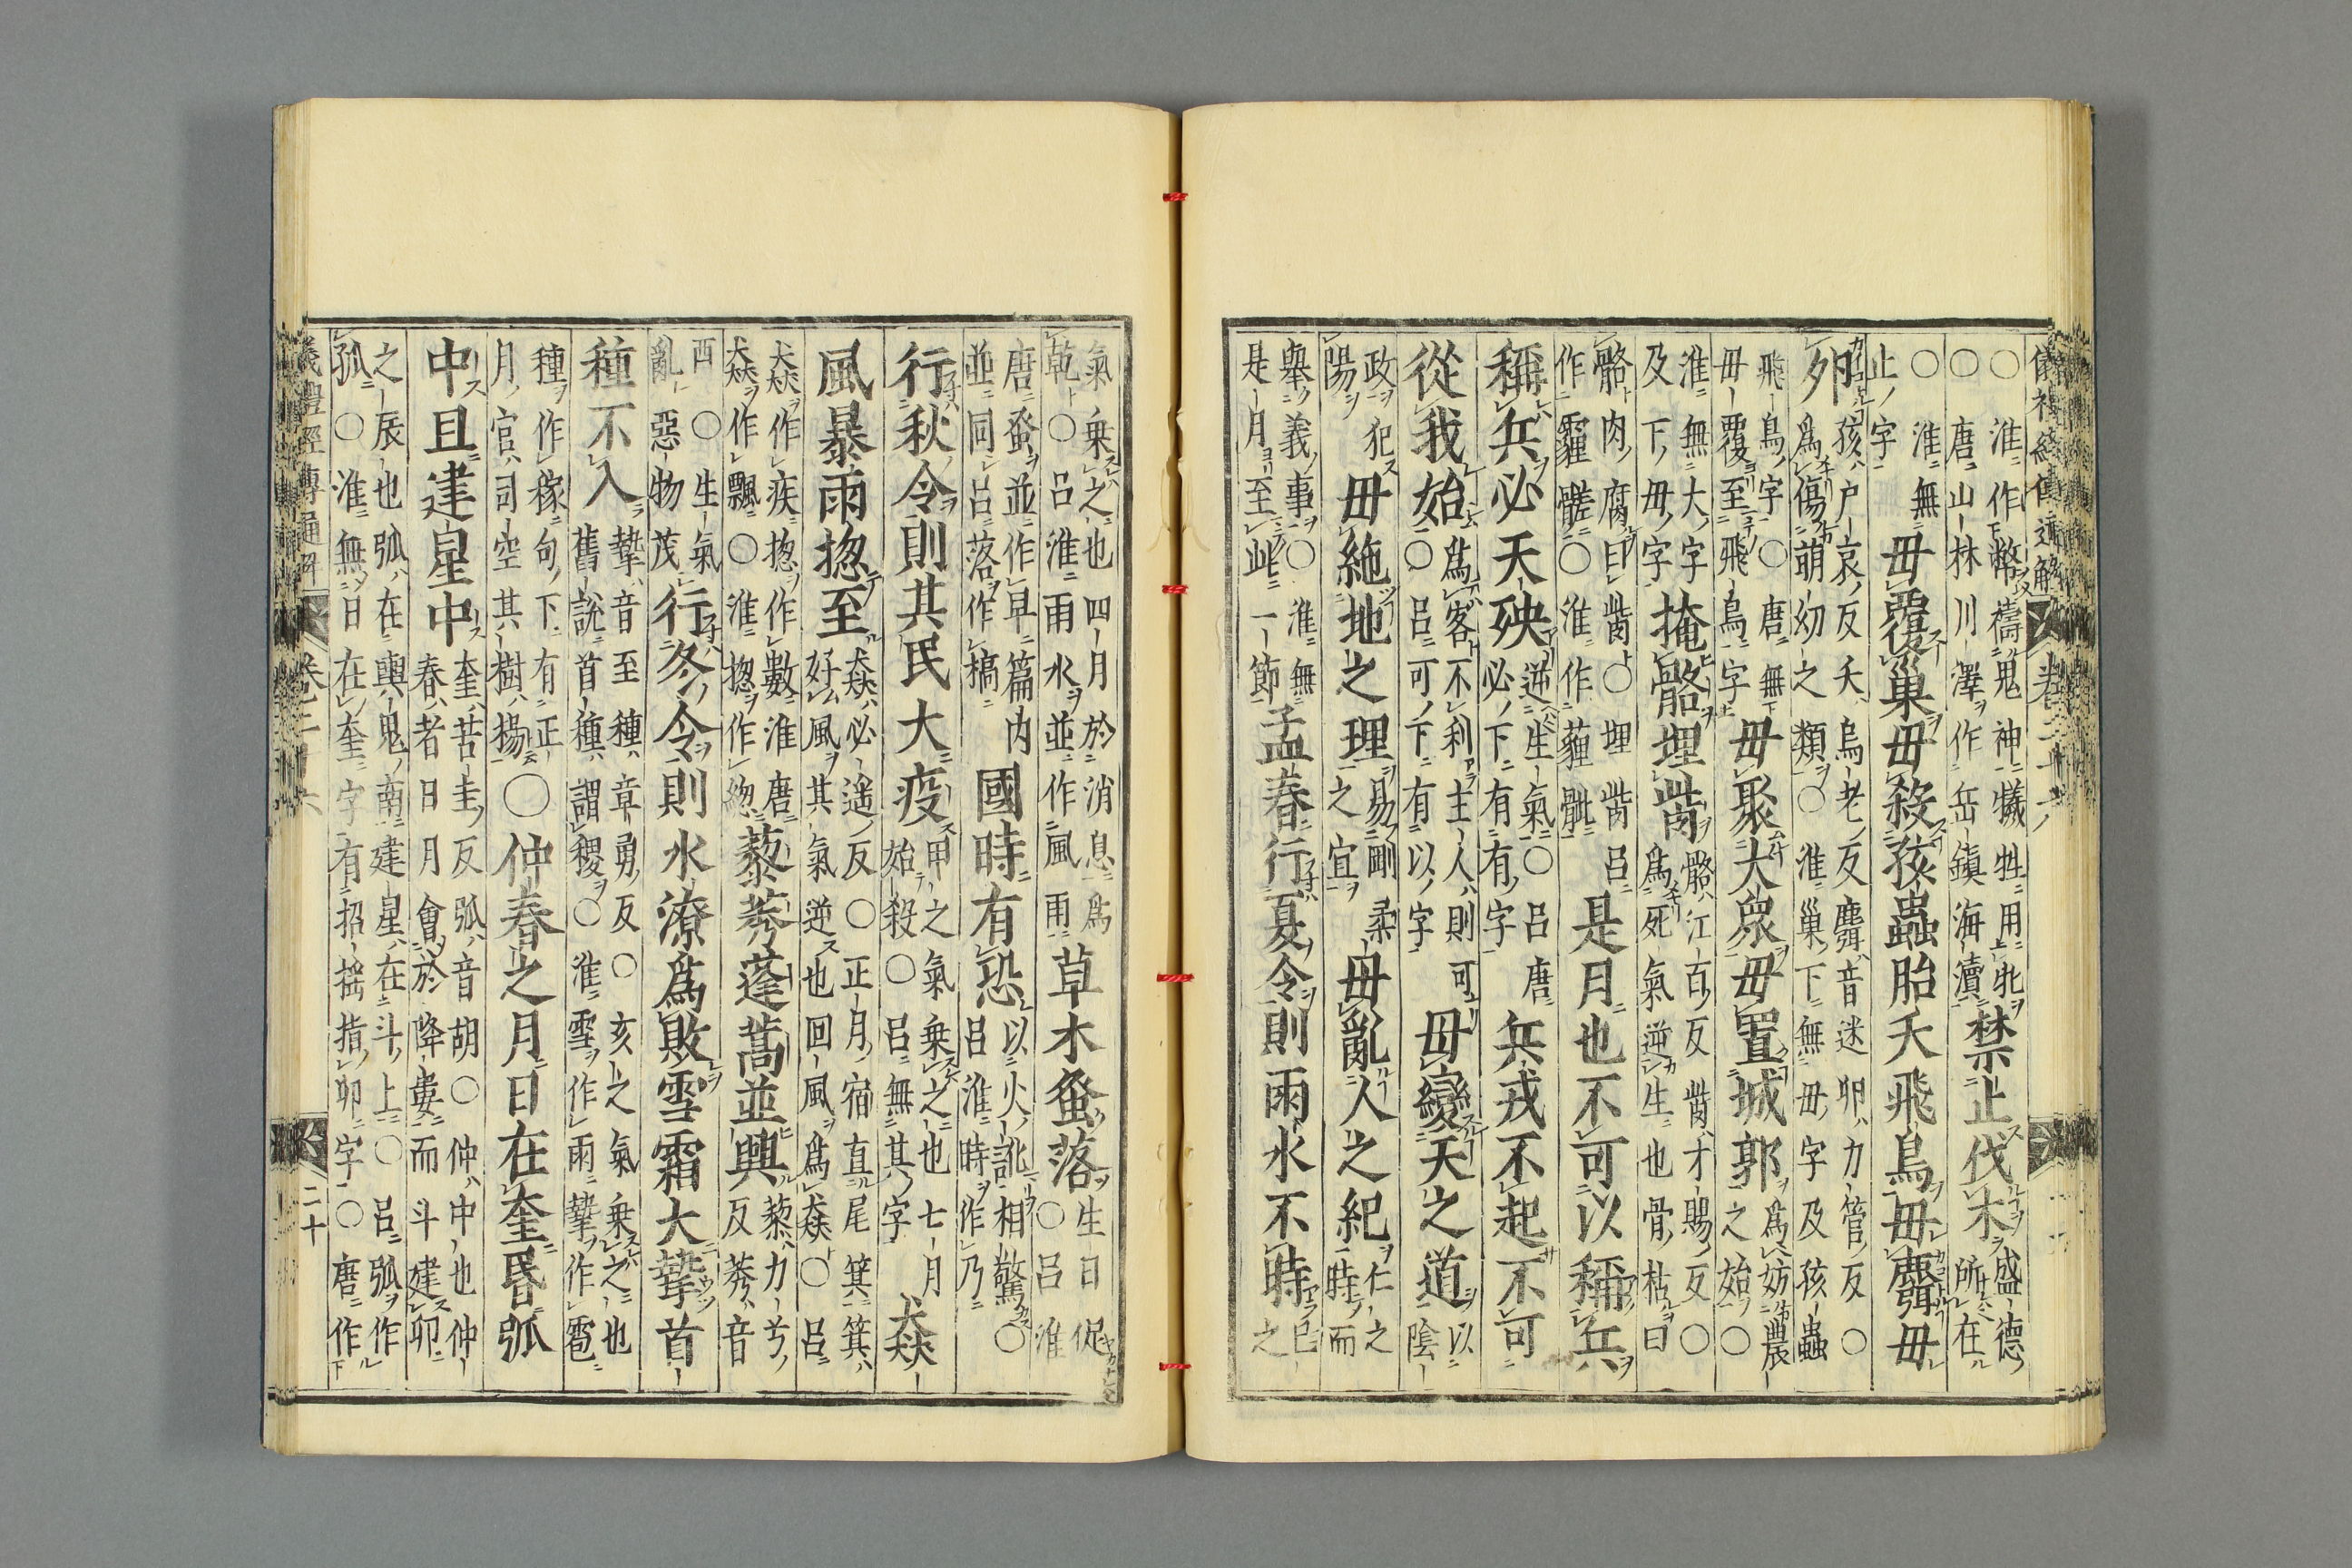 儀禮經傳通解 卷二十六
○淮作幣禱鬼神犧牲用牝
○唐山林川澤作岳鎮海瀆
禁止伐木
盛德
所在
○淮無
止字
毋覆巢毋殺孩蟲胎夭飛鳥毋麛毋
卵
孩戶哀反夭烏老反麛音迷卵力管反○
爲傷萌幼之類○淮巢下無毋字及孩蟲
飛鳥字○唐無
毋覆至飛鳥字
毋聚大衆毋置城郭
爲妨農
之始○
淮無大字
及下毋字
掩骼埋胔
骼江百反胔才賜反○
爲死氣逆生也骨枯曰
骼肉腐曰胔○埋胔呂
作霾髊○淮作薶骴
是月也不可以稱兵
稱兵必夭殃
逆生氣○呂唐
必下有有字
兵戎不起不可
從我始
爲客不利主人則可
○呂可下有以字
毋變天之道
以
陰
政犯
陽
毋絶地之理
易剛柔
之宜
毋亂人之紀
仁之
時而
舉義事○淮無
是月至此一節
孟春行夏令則雨水不時
巳
之
氣乗之也四月於消息爲
乾○呂淮雨水並作風雨
草木蚤落
生日促
○呂淮
唐蚤並作早篇内
並同呂落作槁
國時有恐
以火訛相驚○
呂淮時作乃
行秋令則其民大疫
申之氣乗之也七月
始殺○呂無其字
猋
風暴雨揔至
猋必遥反○正月宿直尾箕箕
好風其氣逆也回風爲猋○呂
猋作疾揔作數淮唐
猋作飄○淮揔作緫
藜莠蓬蒿並興
藜力兮
反莠音
酉○生氣
亂惡物茂
行冬令則水潦爲敗雪霜大摯首
種不入
摯音至種章勇反○亥之氣乗之也
舊說首種謂稷○淮雪作雨摯作雹
種作稼句下有正
月官司空其樹楊
○仲春之月日在奎昏弧
中旦建星中
奎苦圭反弧音胡○仲中也仲
春者日月會於降婁而斗建卯
之辰也弧在輿鬼南建星在斗上○呂弧作
弧○淮無日在奎字有招揺指卯字○唐作
儀禮經傳通解 卷二十六 二十